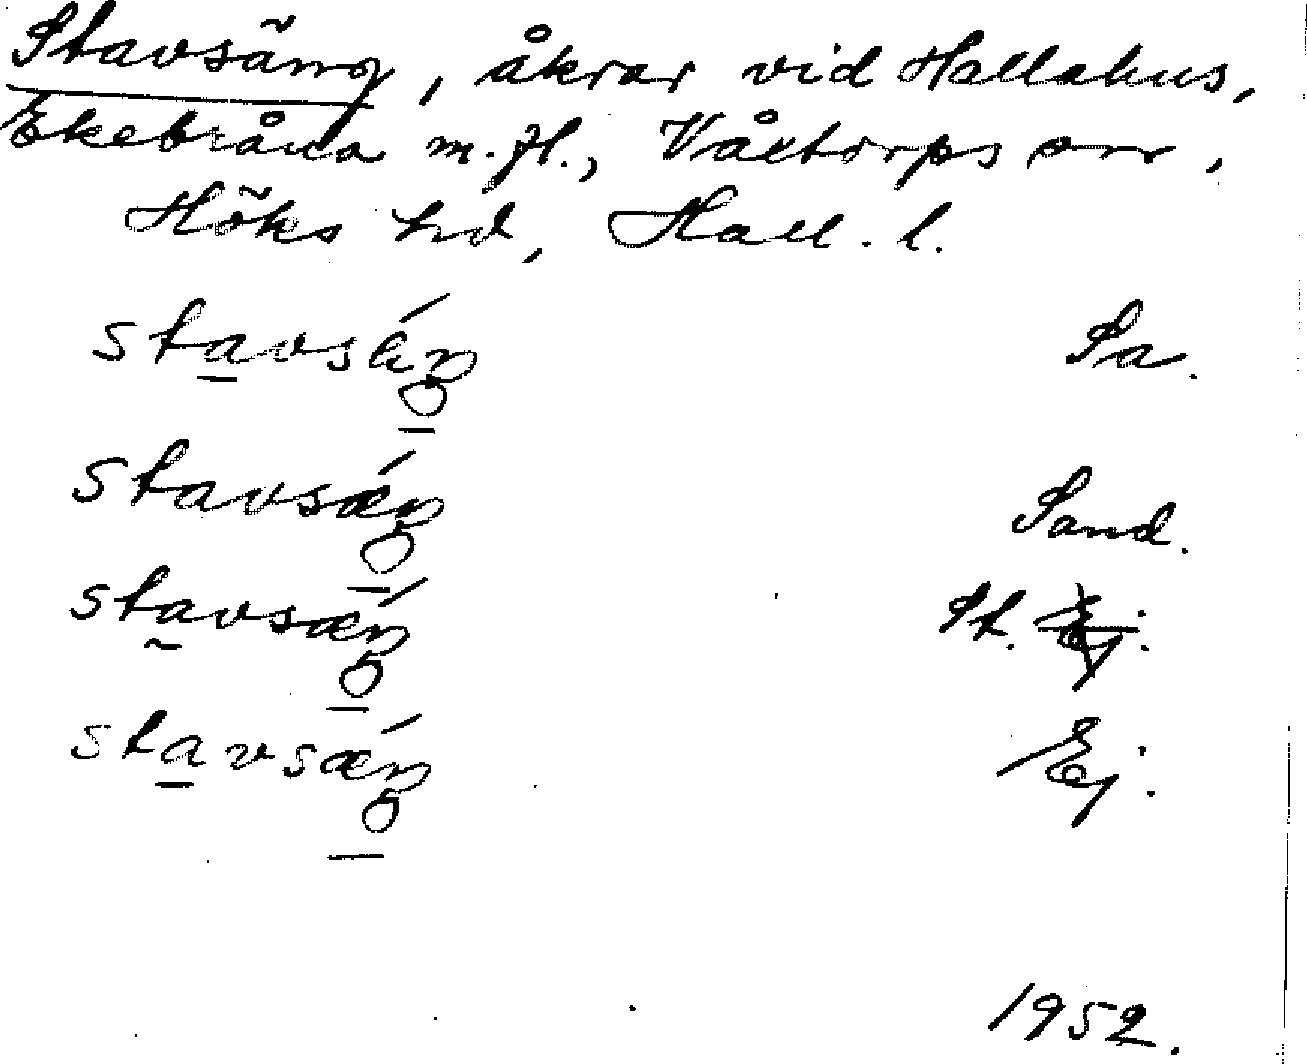 Stavsäng, åkrar vid Hallahus,
Ekebråna m.fl., Våxtorps sn,
Höks hd, Hall. l.
stavsäŋ Sa.
stavsæŋ Sand.
stavsæŋ St. Ej.
stavsæŋ Ej.
1952.